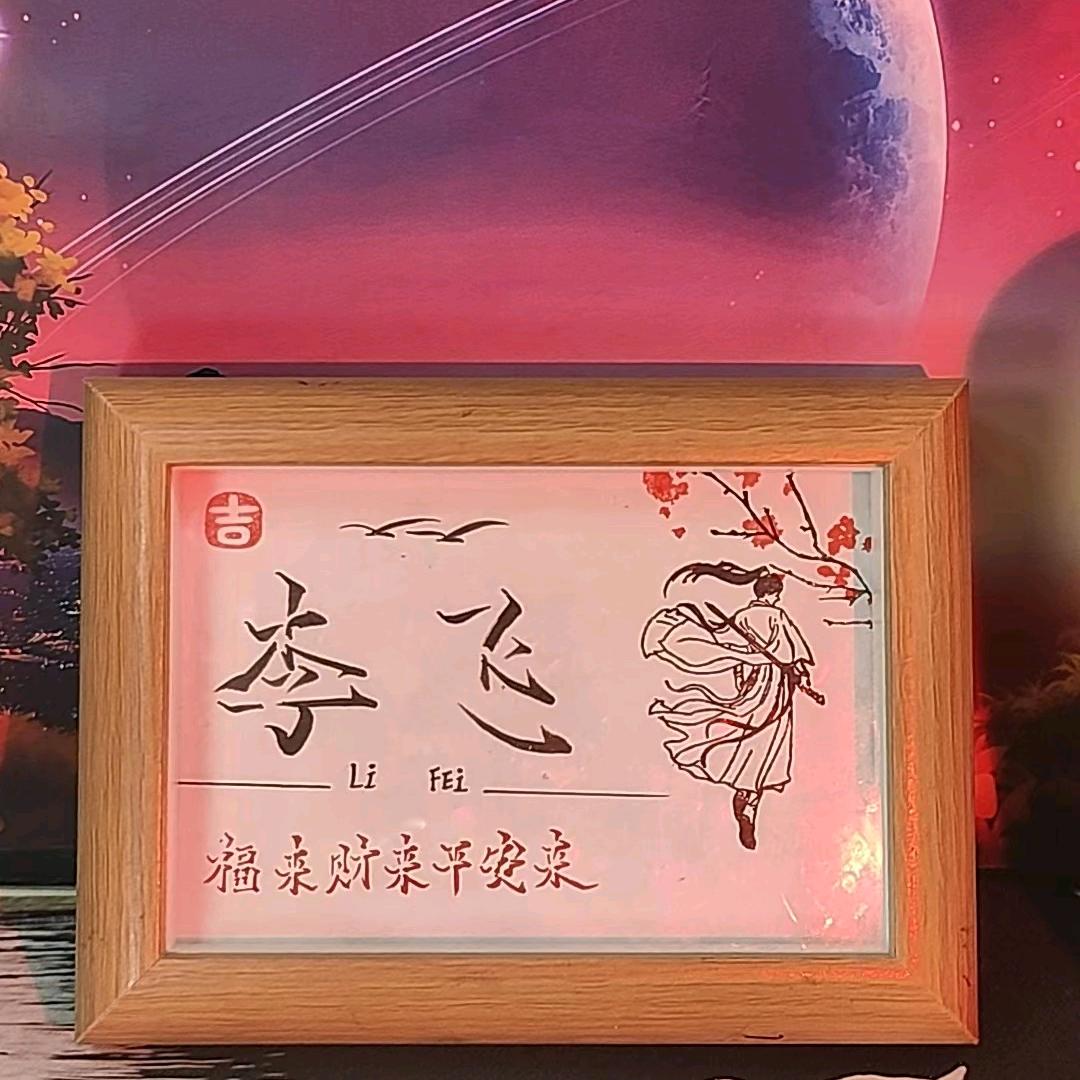 吉
李 飞
Li FEi
福来财来平安来